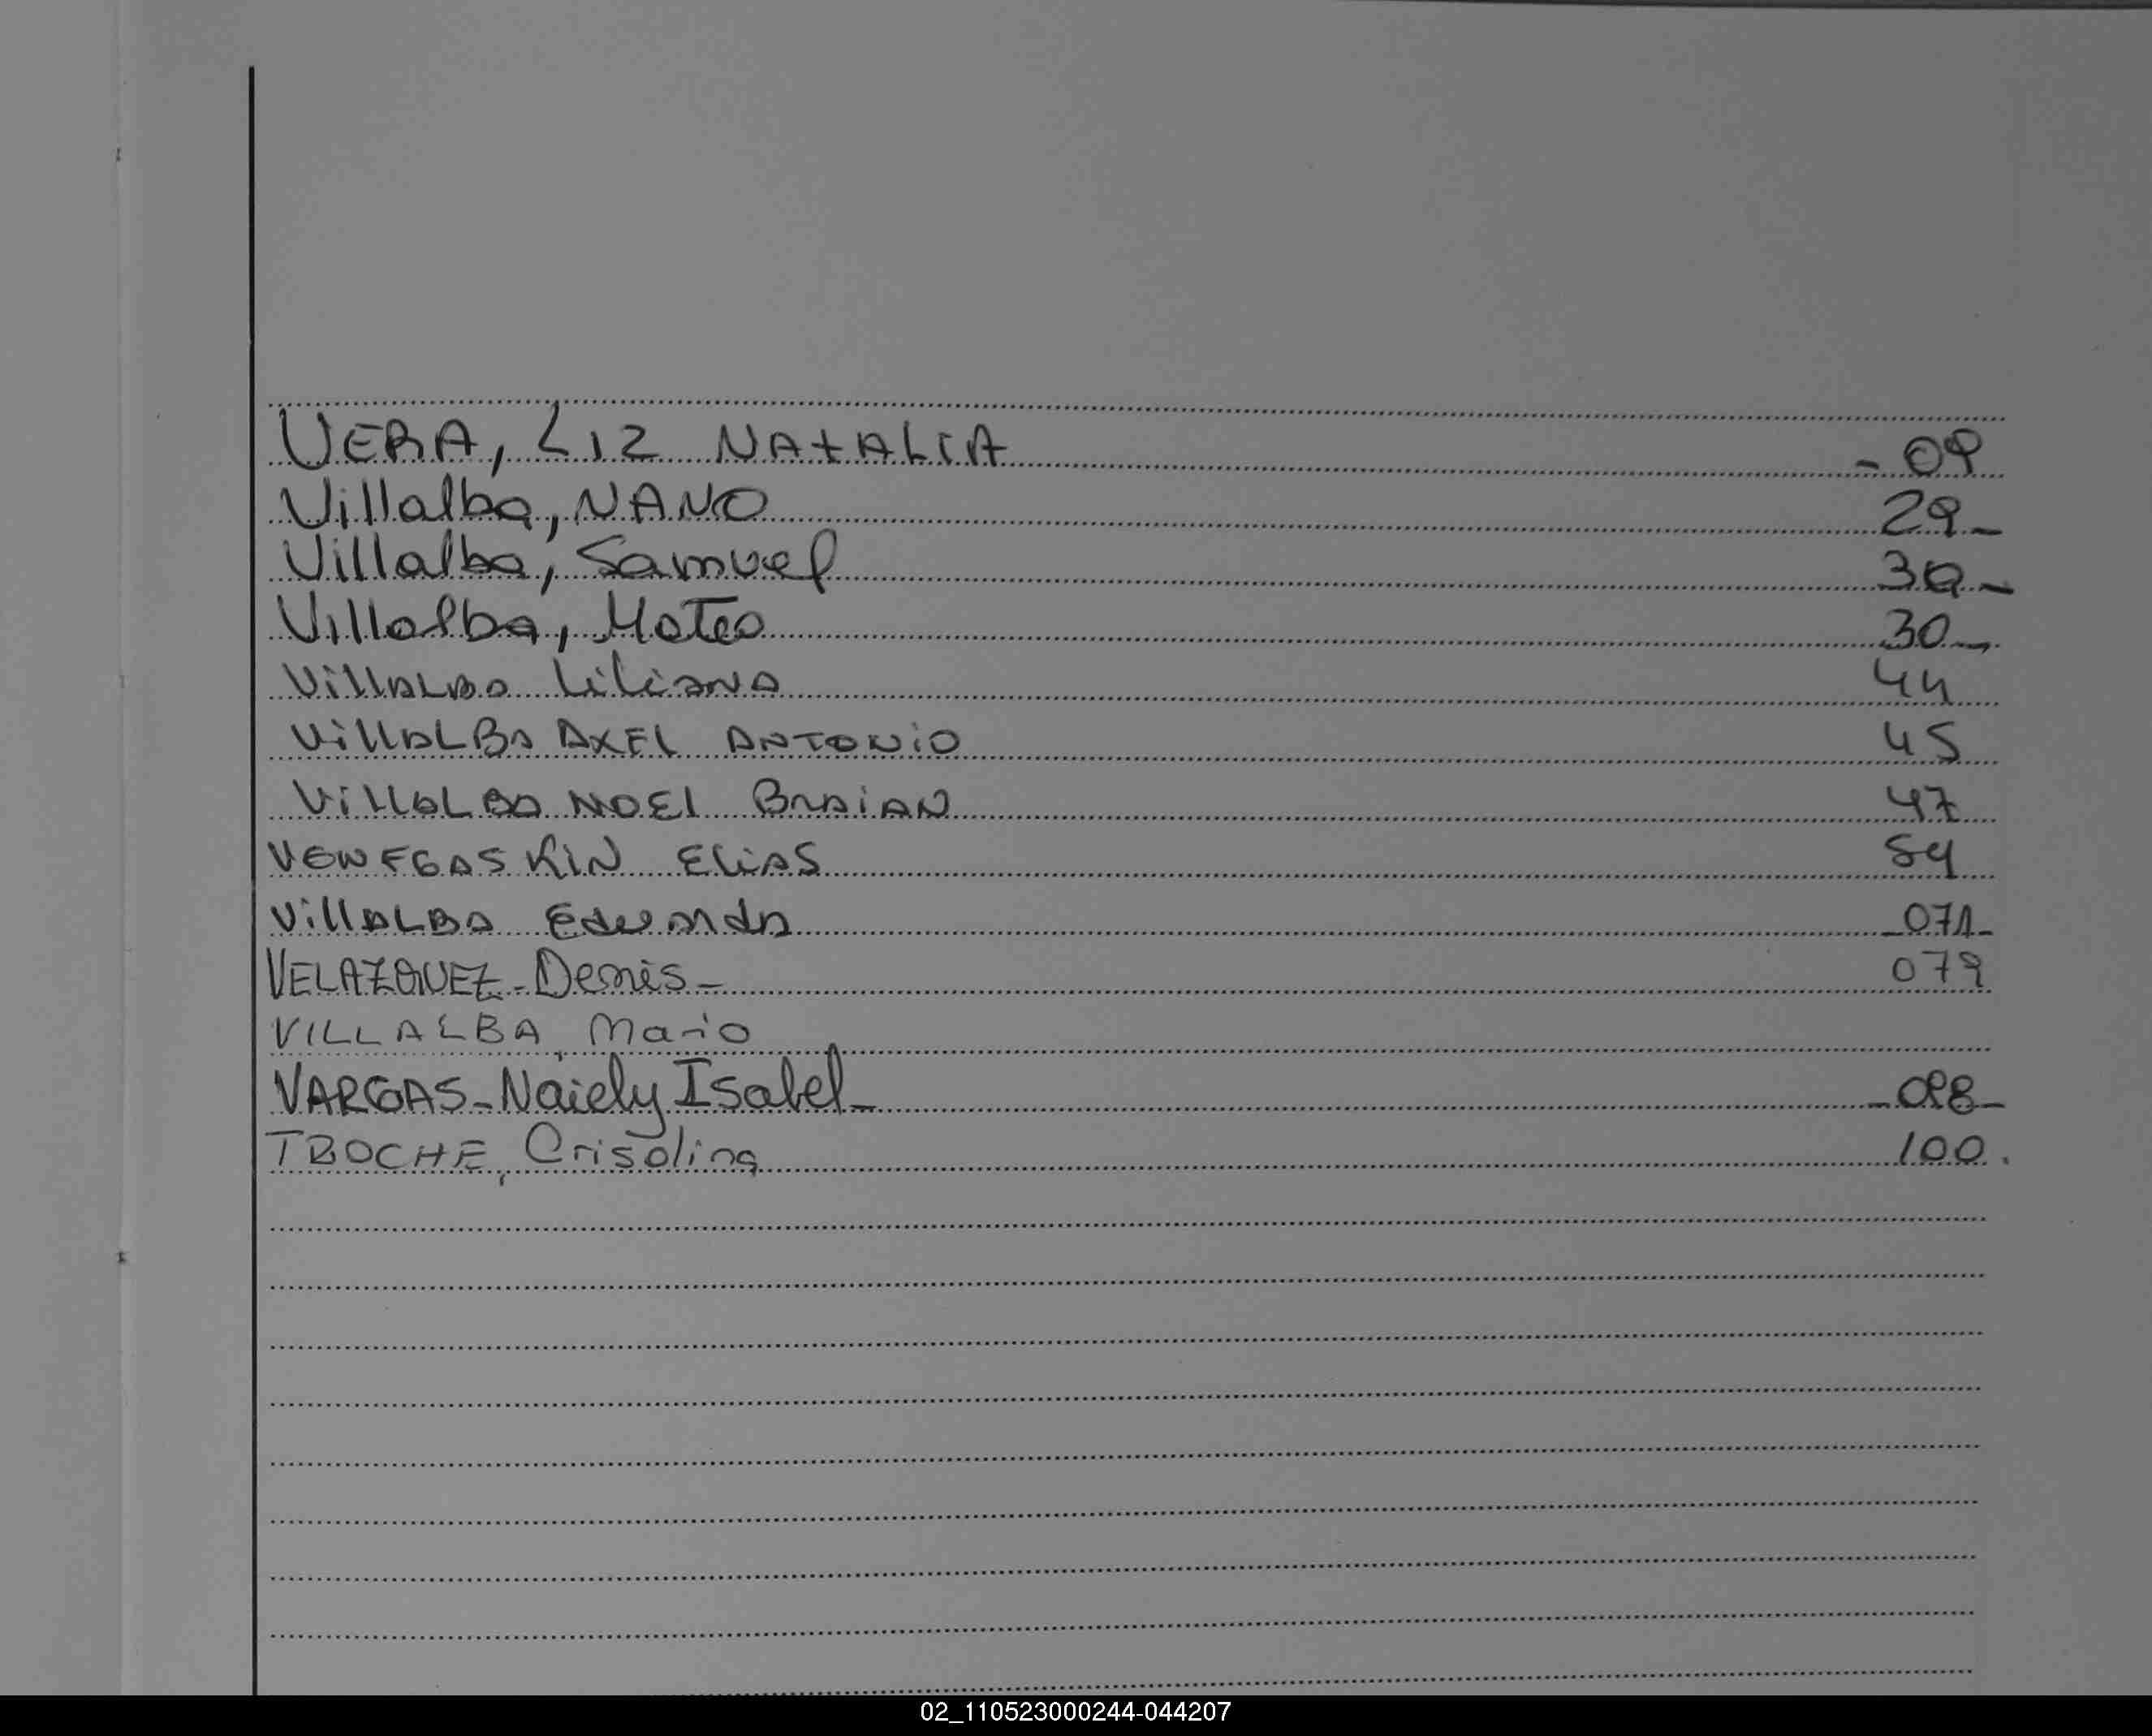 VERA, LIZ NATALIA - 09
Villalba, NANO 29-
Villalba, Samuel 30-
Villalba, Mateo 30-
VillALBA LiLiANA 44
VillALBA AXEL ANTONiO 45
VillALBA NOEl BRAiAN 47
VENEGAS KiN ELiAS 54
VillALBA Eduardo -071-
VELAZQUEZ-Denis- 079
VILLALBA, Mario
VARGAS-Naiely Isabel- -098-
TROCHE, Crisolina 100.
02_110523000244-044207